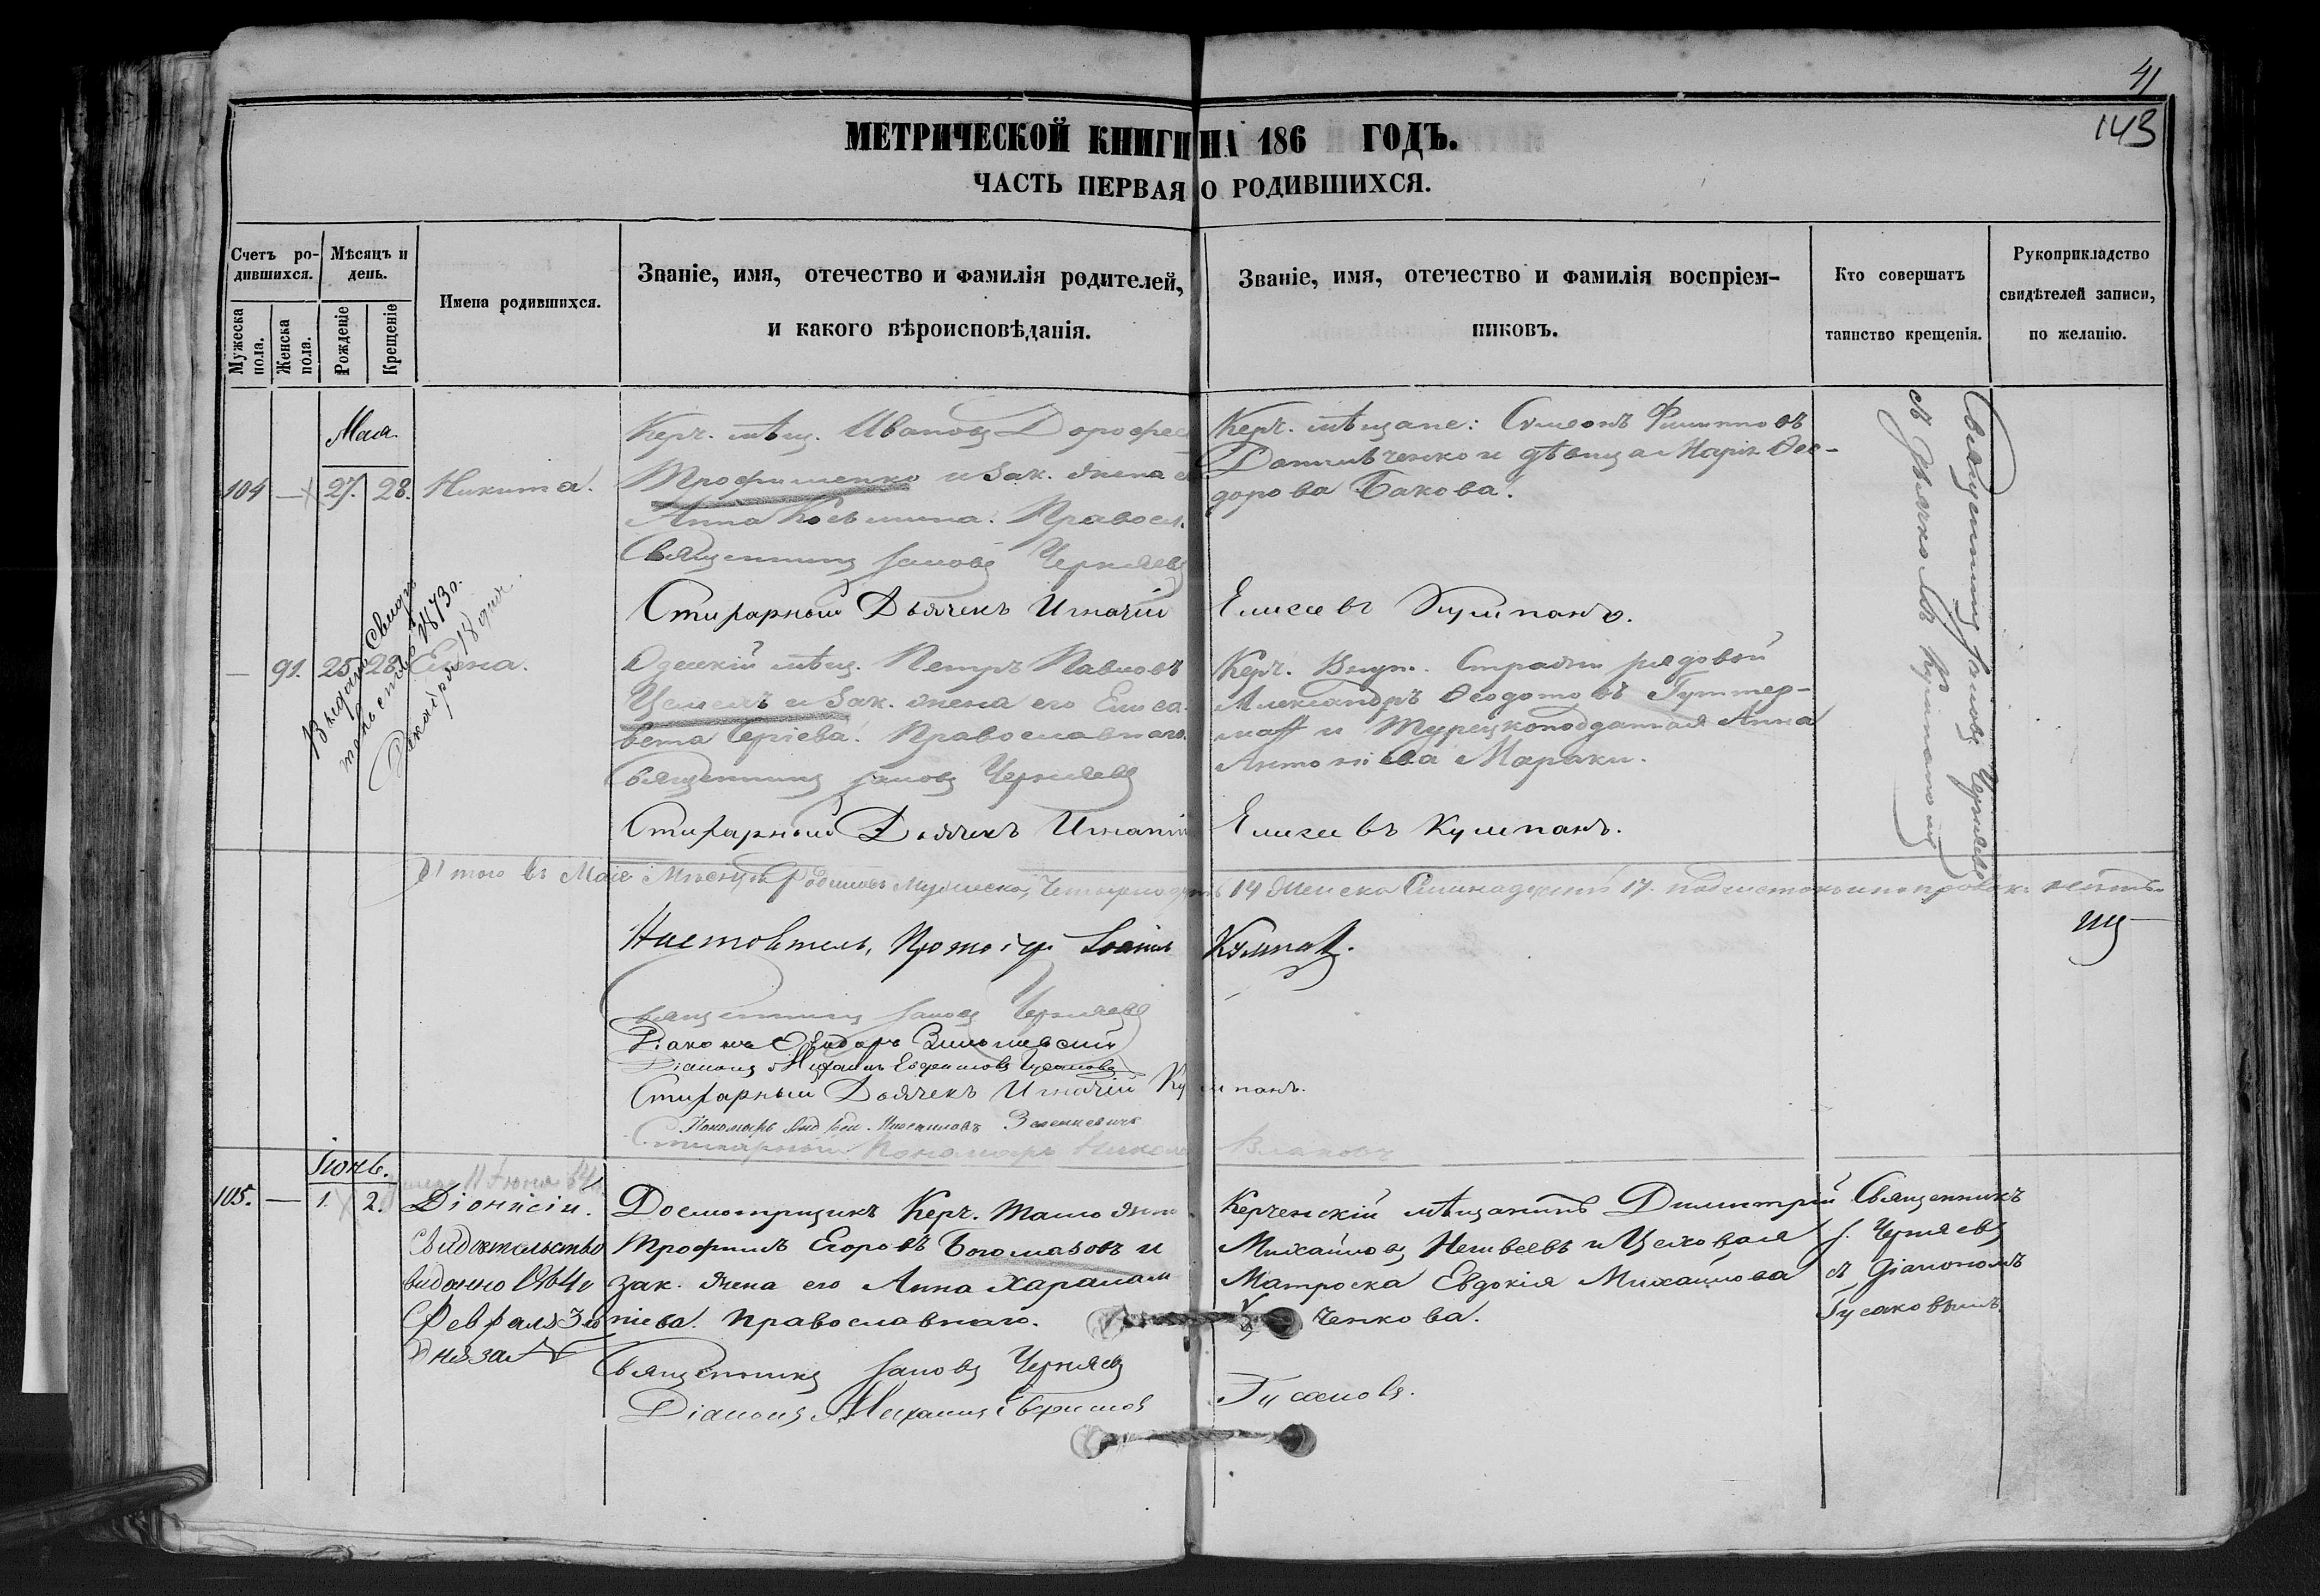 41
143
МЕТРИЧЕСКОЙ КНИГИ НА 186 ГОДЪ.
ЧАСТЬ ПЕРВАЯ О РОДИВШИХСЯ.
Счетъ ро-
дившихся.
Мужеска пола.
Женска пола.
Мѣсяцъ и
день.
Рожденіе
Крещеніе
Имена родившихся.
Званіе, имя, отечество и фамилія родителей,
и какого вѣроисповѣданія.
Званіе, имя, отечество и фамилія воспріем-
никовъ.
Кто совершатъ
таинство крещенія.
Рукоприкладство
свидѣтелей записи,
по желанію.
Мая.
104 — 27. 28. Никита.
Керч. мѣщ. Ивановъ Дорофее
Трофименко и зак. жена е
Анна Косьмина. Правосл.
Священникъ Іаковъ Черняевъ
Стихарный Дьячекъ Игнатій
Керч. мѣщане: Симеонъ Филипповъ
Данильченко и дѣвица Марія Ѳео-
дорова Бакова.
Елисеевъ Кулпанъ.
Священникъ Іаковъ Черняевъ
съ Дьячкомъ Кулпаномъ
— 91. 25. 28. Елена.
Выдано свидѣ
тельство 1873 г.
Декабря 18 дня.
Одесскій мѣщ. Петръ Павловъ
Цемехъ и зак. жена его Елиса-
вета Сергіева. Православнаго.
Священникъ Іаковъ Черняевъ
Стихарный Дьячекъ Игнатій
Керч. Внут. Стражи рядовой
Александръ Ѳеодотовъ Гуттер-
манъ и Турецкоподданная Анна
Антоніева Мараки.
Елисеевъ Кулпанъ.
Итого въ Маѣ Мѣсяцѣ родилось Мужеска Четырнадцать 14 Женска Семнадцать 17.
Настоятель, Протоіер Іоаннъ Кулпан.
Священникъ Іаковъ Черняевъ
Діаконъ Ѳеодоръ
Діаконъ Михаилъ Евфимовъ Гусаковъ
Стихарный Дьячекъ Игнатій Кулпанъ.
Пономарь
Стихарный Пономарь Никола Влаховъ
Іюнь.
105. — 1. 2. Діонисій.
Свидетельство
виданно 1864 г
Февраля 3 го
дня за №
Досмотрщикъ Керч. Таможни
Трофимъ Егоровъ Богомазовъ и
зак. жена его Анна Харалам
піева. Православнаго.
Священникъ Іаковъ Черняевъ
Діаконъ Михаилъ Евфимов
Керченскій мѣщанинъ Димитрій
Михайловъ Немвеевъ и Цеховая
Матроска Евдокія Михайлова
ченкова.
Гусаковъ.
Священникъ
І. Черняевъ
съ Діакономъ
Гусаковымъ